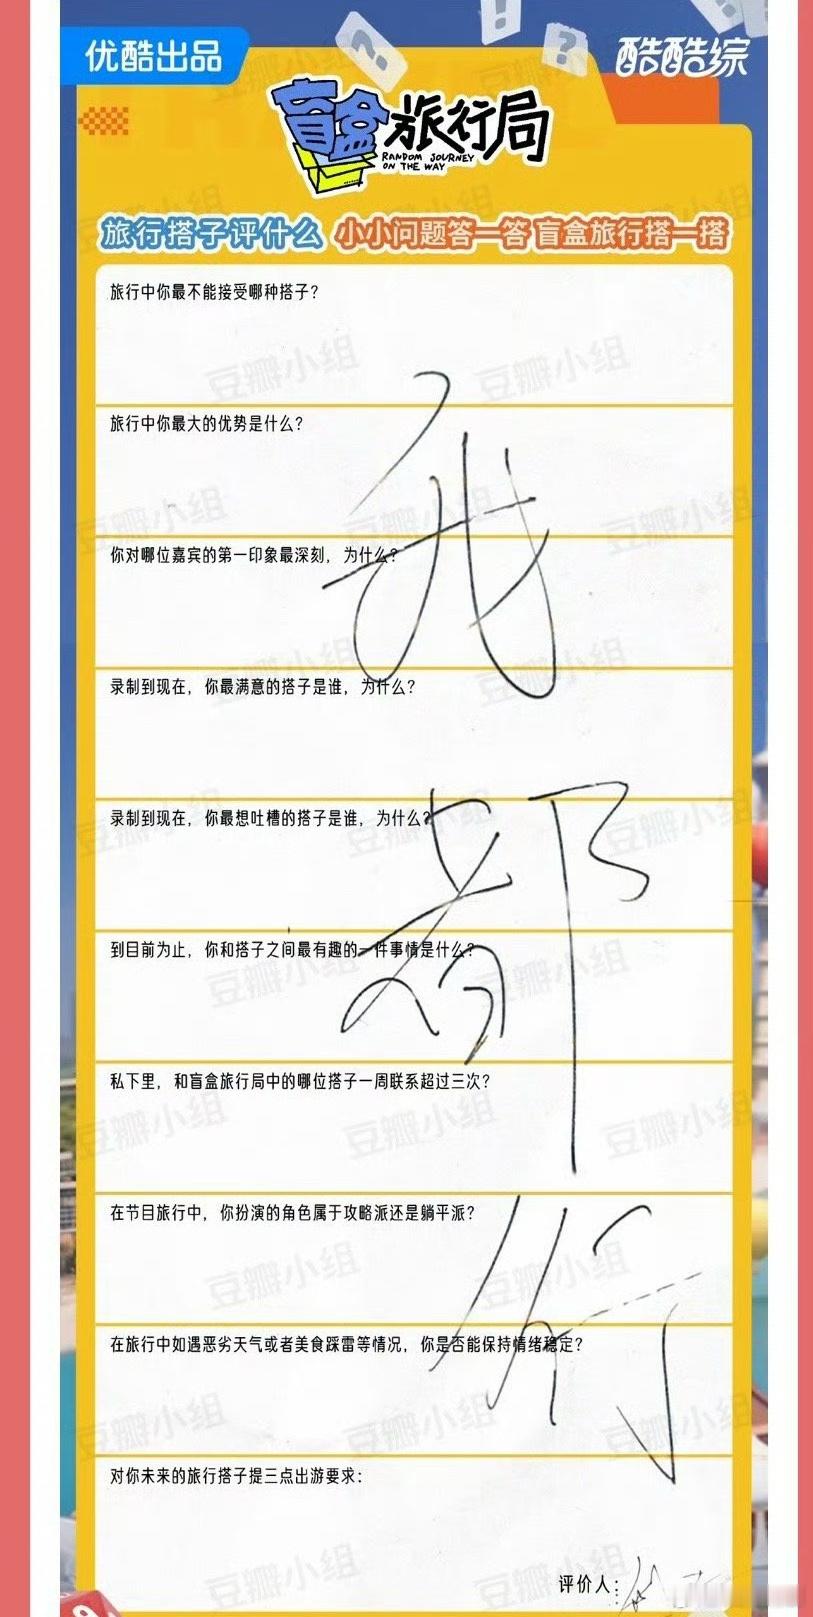 优酷出品
酷酷综
盲盒旅行局
RANDOM JOURNEY
ON THE WAY
旅行搭子评什么 小小问题答一答 盲盒旅行搭一搭
旅行中你最不能接受哪种搭子？
旅行中你最大的优势是什么？
你对哪位嘉宾的第一印象最深刻，为什么？
录制到现在，你最满意的搭子是谁，为什么？
录制到现在，你最想吐槽的搭子是谁，为什么？
到目前为止，你和搭子之间最有趣的一件事情是什么？
私下里，和盲盒旅行局中的哪位搭子一周联系超过三次？
在节目旅行中，你扮演的角色属于攻略派还是躺平派？
在旅行中如遇恶劣天气或者美食踩雷等情况，你是否能保持情绪稳定？
对你未来的旅行搭子提三点出游要求：
我
都
行
评价人：
豆瓣小组